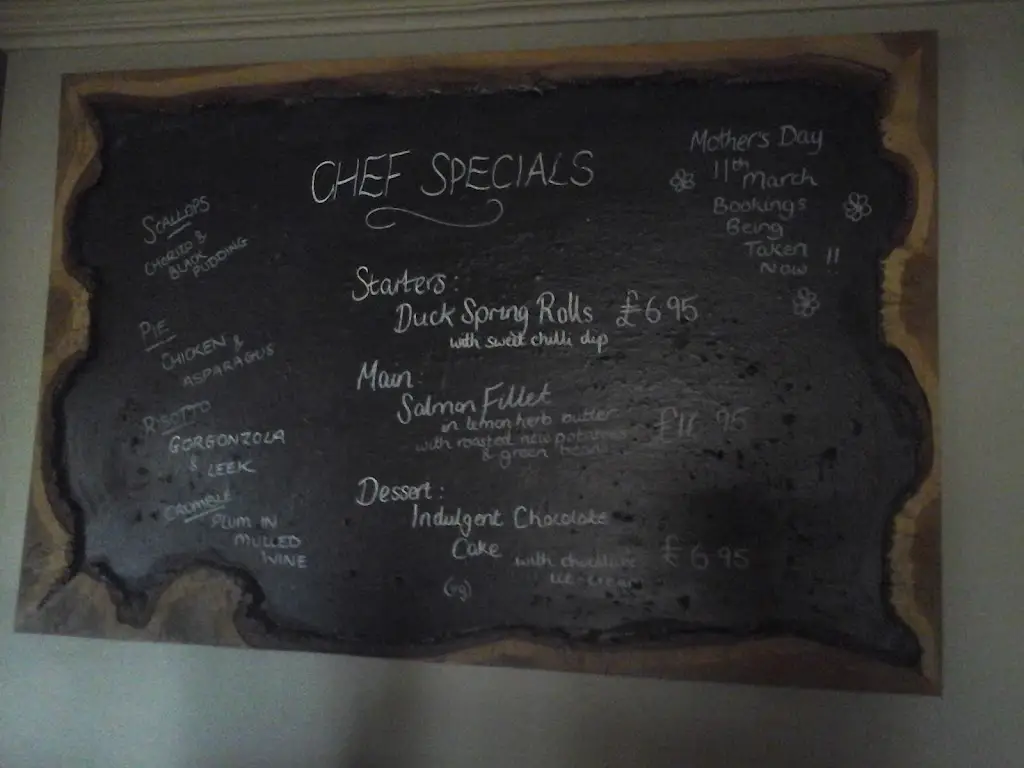 CHEF SPECIALS
Starters:
Duck Spring Rolls £6.95
with sweet chilli dip
Main:
Salmon Fillet
in lemon herb butter £11.95
with roasted new potatoes
& green beans
Dessert:
Indulgent Chocolate
Cake with chocolate £6.95
ice-cream
SCALLOPS
CHORIZO &
BLACK
PUDDING
PIE
CHICKEN &
ASPARAGUS
RISOTTO
GORGONZOLA
& LEEK
CRUMBLE
PLUM IN
MULLED
WINE
Mother's Day
11th
March
Bookings
Being
Taken
Now !!